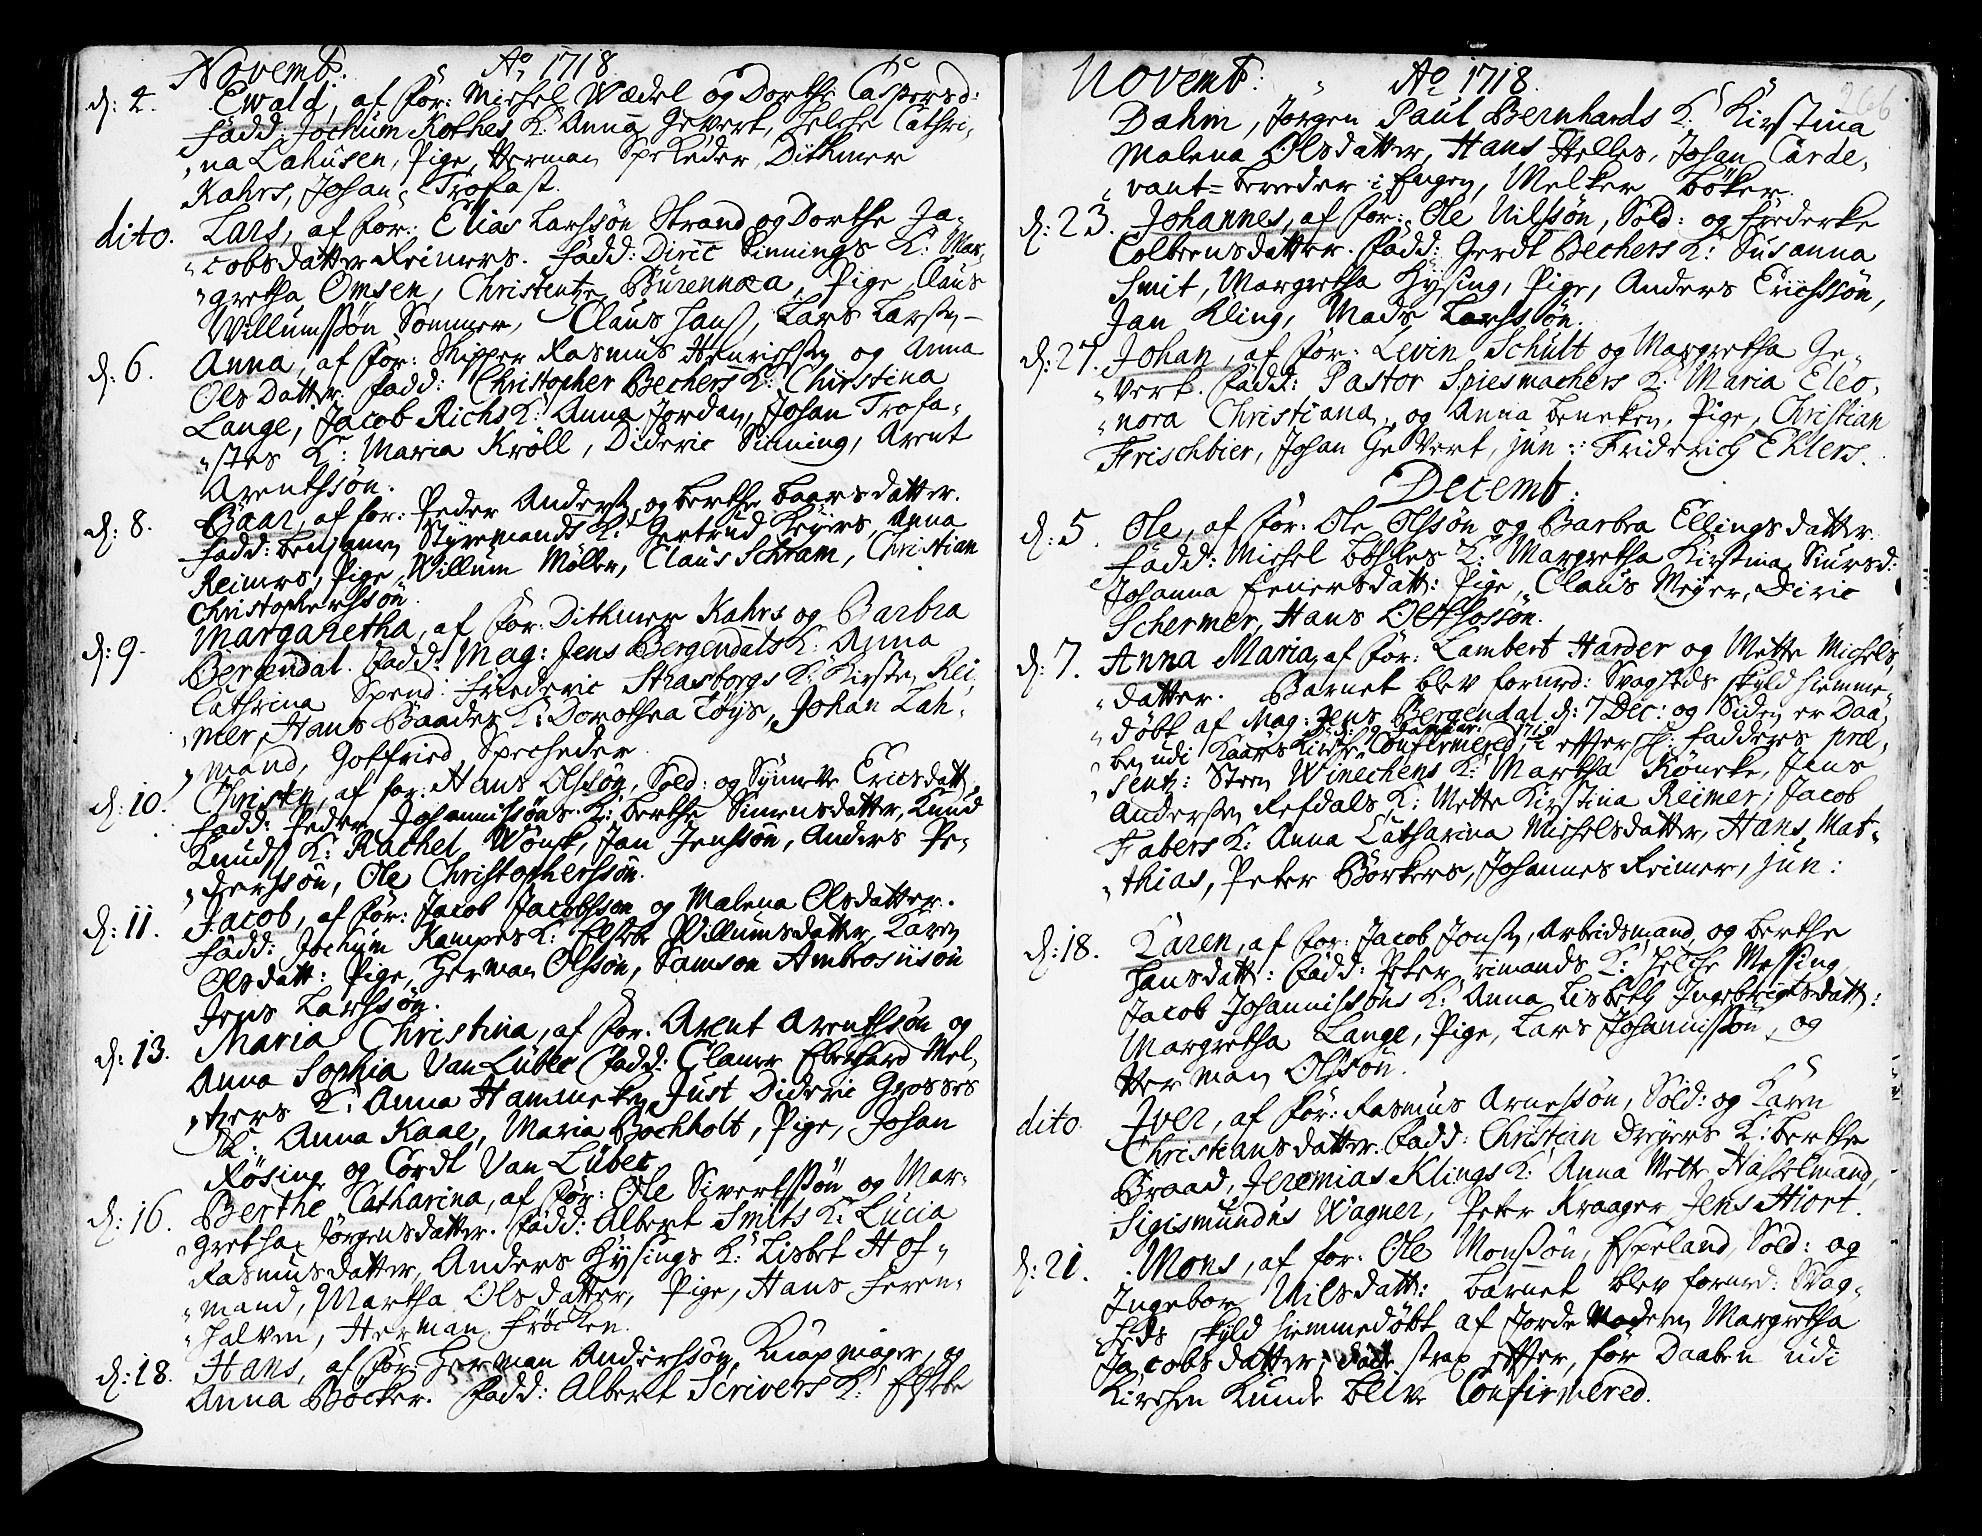 Novemb: Ao 1718.
d: 4. Ewald, af for: Michel Wædel og Dorthe Caspersd:
fadd: Jochum Kothes K: Anna Gevert, Helche Cathri-
na Lahusen, Pige, Herman Spekeder, Dithmer
Kahrs, Johan Trofast.
dito. Lars, af for: Elias Larssøn Strand og Dorthe Ja-
cobsdatter Reimers. fadd: Diric Sinnings K: Mar-
gretha Omsen, Christentze Burennæa, Pige, Claus
Willumssøn Sommer, Claus Hanss, Lars Larsen
d: 6. Anna, af for: Skipper Rasmus Henrichsen og Anna
Ols Datter. fadd: Christopher Bechers K: Chirstina
Lange, Jacob Richs K: Anna Jordan, Johan Trofa-
stes K: Maria Kröll, Dideric Sinning, Arent
Arentssøn.
d: 8. Baar, af for: Peder Anderss. og Berthe Baarsdatter.
fadd: Benjamin Styremands K: Gertrud Reyers, Anna
Reimers, Pige, Willum Möller, Claus Schram, Christian
Christophersøn.
d: 9. Margaretha, af for: Dithmer Kahrs og Barbra
Bergendal. fadd: Mag: Jens Bergendals K: Anna
Cathrina Spend: Friederic Strasborgs K: Kirsten Rei-
mer, Hans Baades K: Dorothea Töys, Johan Lah-
mand, Gotfried Specheder.
d: 10. Christen, af for: Hans Olssøn, Sold: og Synneve Ericsdatt
fadd: Peder Johannissøns K: Berthe Simensdatter, Knud
Knuds K: Rachel Wönsk, Jan Jenssøn, Anders Pe-
derssøn, Ole Christopherssøn.
d: 11. Jacob, af for: Jacob Jacobssøn og Malena Olsdatter.
fadd: Jochum Kampes K: Elsebe Willumsdatter, Karen
Olsdatt: Pige, Herman Olssøn, Samson Ambrosiisøn
Jens Larssøn.
d: 13. Maria Christina, af for: Arent Arentssøn og
Anna Sophia Van Lübec fadd: Clamer Eberhard Mel-
tzers K: Anna Hammeken, Just Dideric Grosses
K: Anna Kaae, Maria Bochholt, Pige, Johan
Rösing og Cordt Van Lübec
d: 16. Berthe Catharina, af for: Ole Sivertssøn og Mar-
gretha Jörgensdatter. fadd: Albert Smits K: Lucia
Rasmusdatter, Anders Hysings K: Lisbet Hof-
mand, Martha Olsdatter, Pige, Hans Feren-
halven, Herman Fröchen.
d: 18. Hans, af for: Herman Anderssøn, Knapmager, og
Anna Böcker. fadd: Albert Scrivers K: Elsebe
Novemb: Ao 1718. 266
Dahm, Jörgen Paul Bernhards K: Kirstina
Malena Olsdatter, Hans Helles, Johan Carde-
vant= bereder i Engen, Melker Böker.
d: 23. Johannes, af for: Ole Nilssøn, Sold: og Frederke
Colbensdatter. fadd: Gerdt Bechers K: Susanna
Smit, Margretha Hysing, Pige, Anders Ericssøn,
Jan Kling, Mads Larssøn.
d: 27. Johan, af for: Levin Schult og Margretha Ge-
vert. fadd: Pastor Spiesmachers K: Maria Eleo-
nora Christiana, og Anna Beneken, Pige, Christian
Frischbier, Johan Gevert, jun: Friderich Ehlers.
Decemb:
d: 5. Ole, af for: Ole Olssøn og Barbra Ellingsdatter.
fadd: Michel Böhles K: Margretha Kirstina Siursd:
Johanna Einersdatt: Pige, Claus Meyer, Diric
Schermer, Hans Olssøn.
d: 7. Anna Maria, af for: Lambert Harder og Mette Michels
datter. Barnet blev formed: Svagheds skyld hiemme-
döbt af Mag: Jens Bergendal d: 7 Dec: og Siden er Daa-
ben udi Kaars Kirke Confirmered, efter fadders præ-
sentz: Steen Winechens K: Martha Köneke, Jens
Andersen Refdals K: Mette Kirstina Reimer, Jacob
Fabers K: Anna Catharina Michelsdatter, Hans Mat-
thias, Peter Börkers, Johannes Reimer, jun:
d: 18. Karen, af for: Jacob Jonsen, Arbeidsmand og Berthe
Hansdatt: fadd: Peter Timands K: Helche Messing,
Jacob Johannissøns K: Anna Lisbeth Ingebrigtsdatt:
Margretha Lange, Pige, Lars Johannissøn, og
Herman Olssøn.
dito. Iver, af for: Rasmus Arnessøn, Sold: og Karen
Christiansdatter. fadd: Christein Dreyers K: Berthe
Braad, Jeremias Klings K: Anna Mette Hasselmand,
Sigismundus Wagner, Peter Kraager, Jens Hiort.
d: 21. Mons, af for: Ole Monssøn, Espeland, Sold: og
Ingebor Nilsdatt: Barnet blev formed: Svag-
heds skyld hiemmedöbt af Jorde Moderen Margretha
Jacobsdatter, döde strax efter, för Daaben udi
Kirchen kunde blive Confirmered.